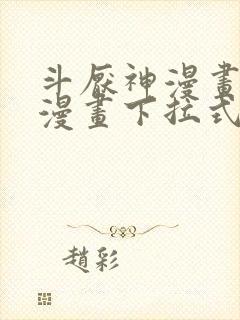 斗厭神漫畫
漫畫下拉式
趙彩